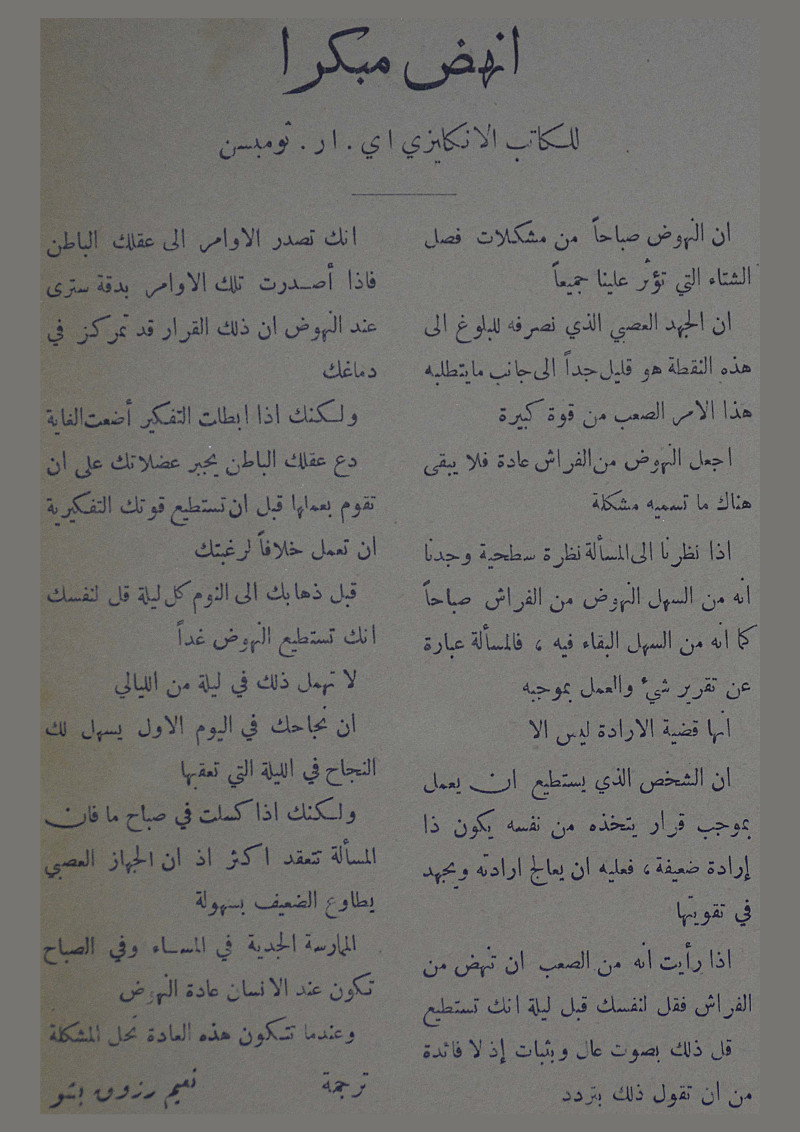 انهض مبكرا
للكاتب الانكليزي اي . ار . ثومبسن
ان النهوض صباحاً من مشكلات فصل
الشتاء التي تؤثر علينا جميعاً
ان الجهد العصبي الذي نصرفه للبلوغ الى
هذه النقطة هو قليل جداً الى جانب مايتطلبه
هذا الامر الصعب من قوة كبيرة
اجعل النهوض من الفراش عادة فلا يبقى
هناك ما تسميه مشكلة
اذا نظرنا الى المسألة نظرة سطحية وجدنا
انه من السهل النهوض من الفراش صباحاً
كما انه من السهل البقاء فيه ، فالمسألة عبارة
عن تقرير شيء والعمل بموجبه
انها قضية الارادة ليس الا
ان الشخص الذي يستطيع ان يعمل
بموجب قرار يتخذه من نفسه يكون ذا
إرادة ضعيفة ، فعليه ان يعالج ارادته ويجهد
في تقويتها
اذا رأيت انه من الصعب ان تنهض من
الفراش فقل لنفسك قبل ليلة انك تستطيع
قل ذلك بصوت عال وبثبات إذ لا فائدة
من ان تقول ذلك بتردد
انك تصدر الاوامر الى عقلك الباطن
فاذا أصدرت تلك الاوامر بدقة سترى
عند النهوض ان ذلك القرار قد تمركز في
دماغك
ولكنك اذا ابطلت التفكير أضعت الغاية
دع عقلك الباطن يجبر عضلاتك على ان
تقوم بعملها قبل ان تستطيع قوتك التفكيرية
ان تعمل خلافاً لرغبتك
قبل ذهابك الى النوم كل ليلة قل لنفسك
انك تستطيع النهوض غداً
لا تهمل ذلك في ليلة من الليالي
ان نجاحك في اليوم الاول يسهل لك
النجاح في الليلة التي تعقبها
ولكنك اذا كسلت في صباح ما فان
المسألة تتعقد اكثر اذ ان الجهاز العصبي
يطاوع الضعيف بسهولة
الممارسة الجدية في المساء وفي الصباح
تكون عند الانسان عادة النهوض
وعندما تتكون هذه العادة تحل المشكلة
ترجمة نعيم رزوق بتو